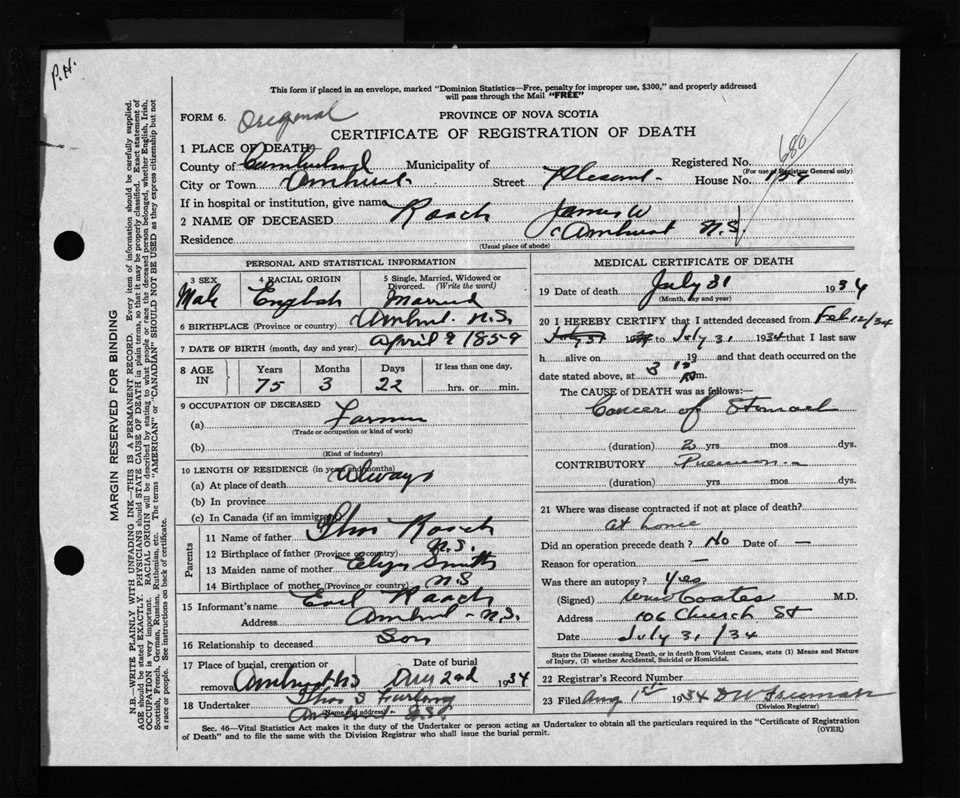 P.H.
This form if placed in an envelope, marked "Dominion Statistics—Free, penalty for improper use, $300," and properly addressed
will pass through the Mail "FREE"
FORM 6. Original PROVINCE OF NOVA SCOTIA
CERTIFICATE OF REGISTRATION OF DEATH
680
1 PLACE OF DEATH
County of Cumberland Municipality of Registered No.
(For use of Registrar General only)
City or Town Amherst Street Plesent House No. 159
If in hospital or institution, give name
2 NAME OF DECEASED Roach James W
Residence Amherst N.S.
(Usual place of abode)
PERSONAL AND STATISTICAL INFORMATION
3 SEX 4 RACIAL ORIGIN 5 Single, Married, Widowed or Divorced. (Write the word)
Male English Married
6 BIRTHPLACE (Province or country) Amherst N.S.
7 DATE OF BIRTH (month, day and year) April 9 1859
8 AGE IN Years Months Days If less than one day,
75 3 22 hrs. or min.
9 OCCUPATION OF DECEASED
(a) Farmer
(Trade or occupation or kind of work)
(b)
(Kind of industry)
10 LENGTH OF RESIDENCE (in years and months)
(a) At place of death Always
(b) In province
(c) In Canada (if an immigrant)
Parents
11 Name of father Roach
12 Birthplace of father (Province or country) N.S.
13 Maiden name of mother Smith
14 Birthplace of mother (Province or country) N S
15 Informant's name Earl Roach
Address Amherst - N.S.
16 Relationship to deceased Son
17 Place of burial, cremation or removal Amherst N S Date of burial Aug 2nd 1934
18 Undertaker
(Name and address)
Amherst
MEDICAL CERTIFICATE OF DEATH
19 Date of death July 31 1934
(Month, day and year)
20 I HEREBY CERTIFY that I attended deceased from Feb 12/34
to July 31 1934 that I last saw
h alive on 19 and that death occurred on
date stated above, at 3 m.
The CAUSE of DEATH was as follows:—
Cancer of Stomach
(duration) 2 yrs mos dys.
CONTRIBUTORY
(duration) yrs. mos. dys.
21 Where was disease contracted if not at place of death?
at home
Did an operation precede death? No Date of —
Reason for operation —
Was there an autopsy? Yes
(Signed) Coates M.D.
Address 106 Church St
Date July 31/34
State the Disease causing Death, or in death from Violent Causes, state (1) Means and Nature
of Injury, (2) whether Accidental, Suicidal or Homicidal.
22 Registrar's Record Number
23 Filed Aug 1st 1934 Freeman
(Division Registrar)
Sec. 46—Vital Statistics Act makes it the duty of the Undertaker or person acting as Undertaker to obtain all the particulars required in the "Certificate of Registration
of Death" and to file the same with the Division Registrar who shall issue the burial permit. (OVER)
MARGIN RESERVED FOR BINDING
N.B.—WRITE PLAINLY WITH UNFADING INK—THIS IS A PERMANENT RECORD. Every item of information should be carefully supplied.
AGE should be stated EXACTLY. PHYSICIANS should STATE CAUSE OF DEATH in plain terms, so that it may be properly classified. Exact statement of
OCCUPATION is very important. RACIAL ORIGIN will be described by stating to what people or race the deceased person belonged, whether English, Irish,
Scottish, French, German, Russian, Ruthenian, etc. The terms "AMERICAN" or "CANADIAN" SHOULD NOT BE USED as they express citizenship but not
a race or people. See instructions on back of certificate.